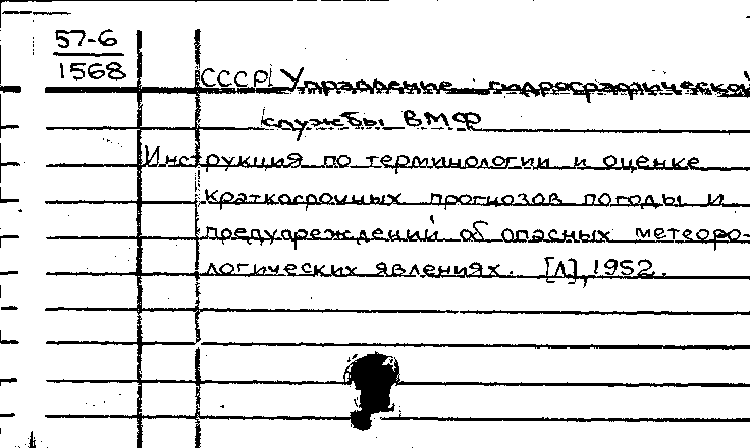 57-6
1568
СССР Управление гидрографической
службы ВМФ
Инструкция по терминологии и оценке
краткосрочных прогнозов погоды и
предупреждений об опасных метеоро-
логических явлениях. [Л], 1952.